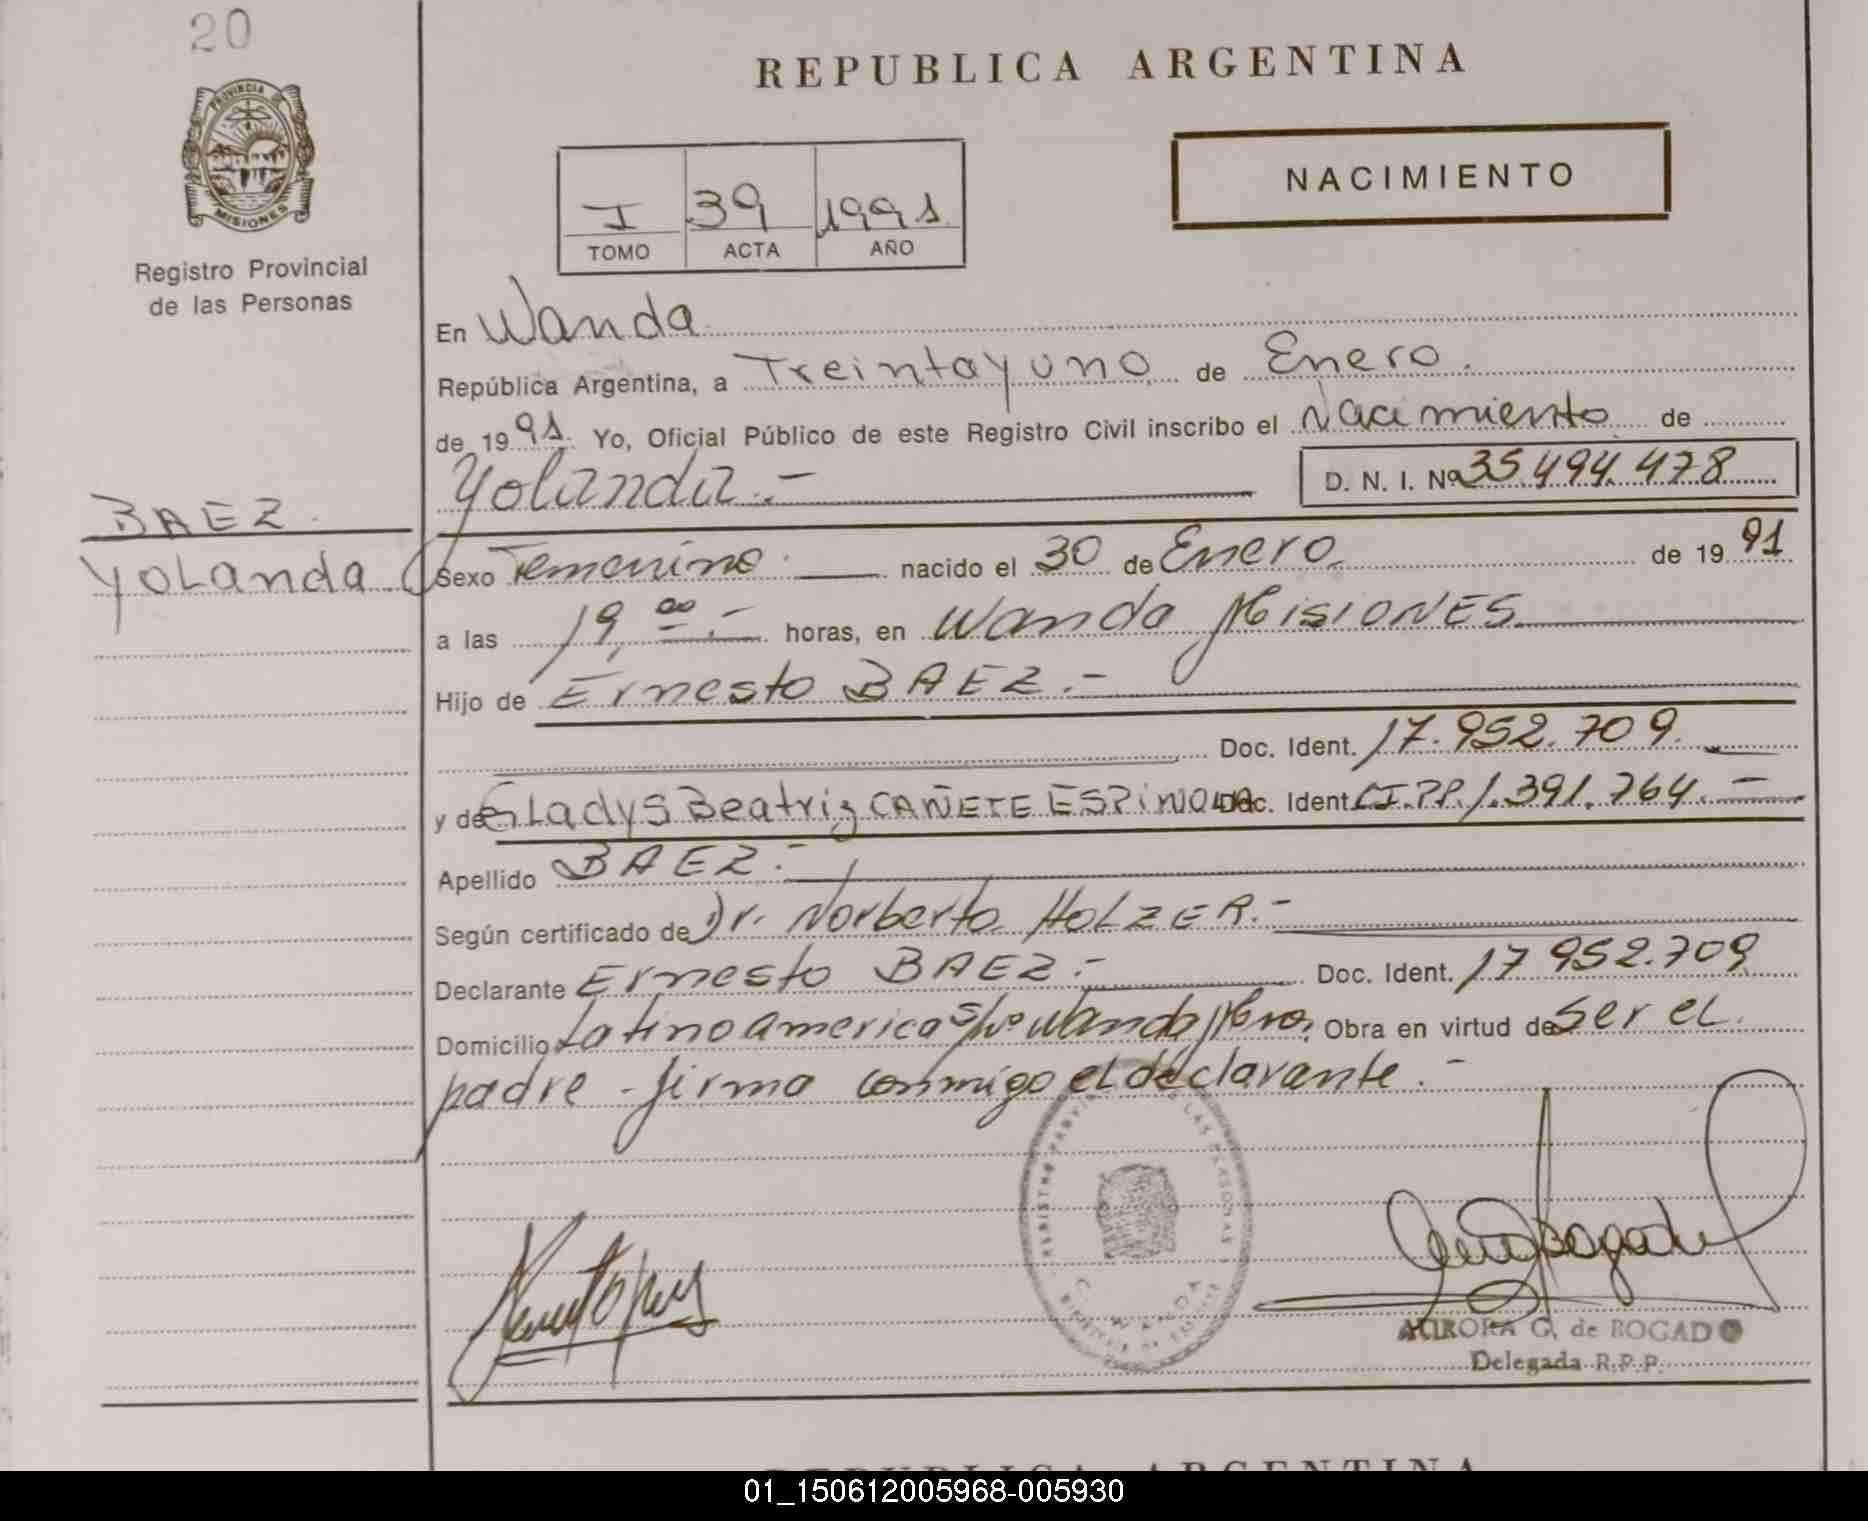 20
REPUBLICA ARGENTINA
PROVINCIA DE
MISIONES
Registro Provincial
de las Personas
I 39 1991
TOMO ACTA AÑO
NACIMIENTO
En Wanda
República Argentina, a Treinta y uno de Enero.
de 1991. Yo, Oficial Público de este Registro Civil inscribo el Nacimiento de
Yolanda.-
D. N. I. Nº 35.494.478
BAEZ.
Yolanda
Sexo Femenino. nacido el 30 de Enero de 1991
a las 19,00.- horas, en Wanda Misiones
Hijo de Ernesto BAEZ.-
Doc. Ident. 17.952.709.
y de Gladys Beatriz CAÑETE ESPINOLA Doc. Ident. C.I.P.P. 1.391.764.-
Apellido BAEZ.-
Según certificado de Dr. Norberto HOLZER.-
Declarante Ernesto BAEZ.- Doc. Ident. 17 952.709
Domicilio Latinoamerica s/nº Wanda Mnes, Obra en virtud de ser el
padre - firma conmigo el declarante.-
AURORA G. de BOGADO
Delegada R.P.P.
REPUBLICA ARGENTINA
01_150612005968-005930